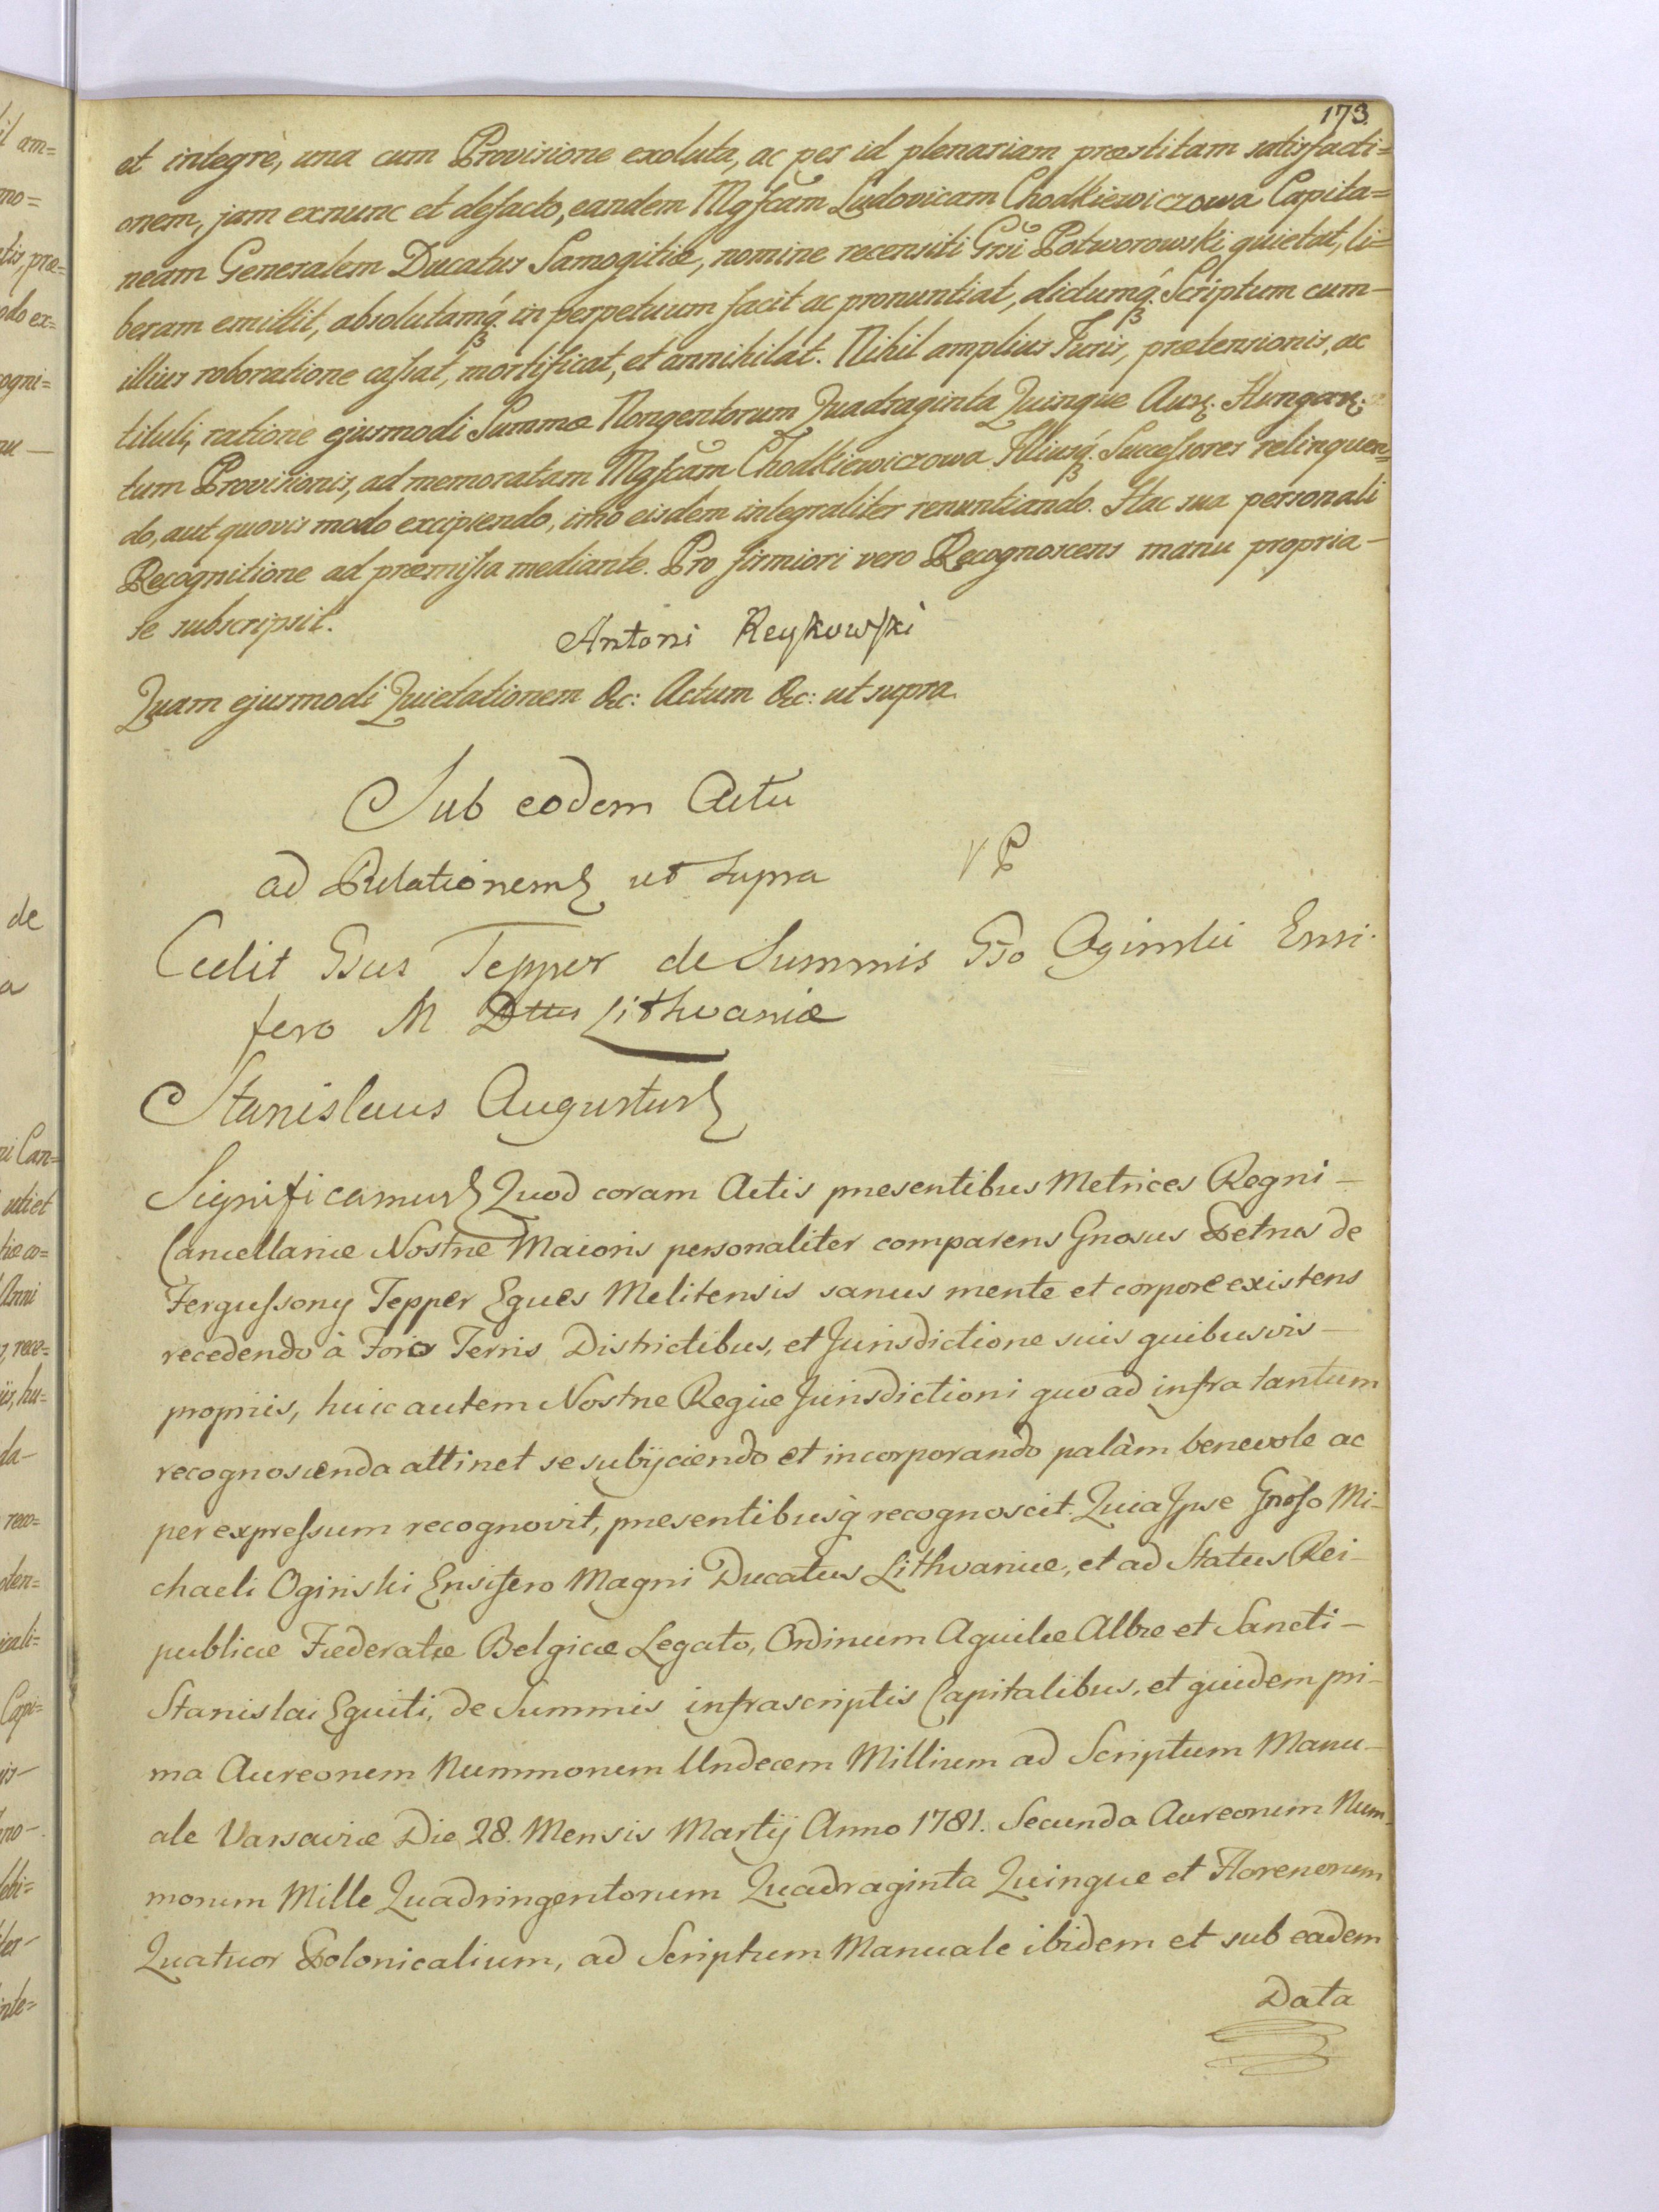 173.
et integrè, una cum Provisione exoluta, ac per id plenariam præstitam satisfacti=
onem, jam exnunc et defacto, eandem Mgfcam Ludovicam Chodkiewiczowa Capita=
neam Generalem Ducatus Samogitiæ, nomine recensiti Grsi Potworowski quietat, li=
beram emittit, absolutamq́. in perpetuum facit ac pronuntiat, dictumq́. Scriptum cum—
illius roboratione cassat, mortificat, et annihilat. Nihil amplius Juris, prætensionis, ac
tituli, ratione ejusmodi Summæ Nongentorum Quadraginta Quinque Aur. Hungar.
tum Provisionis, ad memoratam Mgfcam Chodkiewiczowa Illiusq́. Successores relinquen=
do, aut quovis modo excipiendo, imò eisdem integraliter renuntiando. Hac sua personali
Recognitione ad præmissa mediante. Pro firmiori vero Recognoscens manu propria—
se subscripsit.
Antoni Reykowski
Quam ejusmodi Quietationem &c: Actum &c: ut supra.
Sub eodem Actu
ad Relationem ut supra
Cedit Gsus Tepper de Summis Gso Oginski Ensi-
fero M Dttus Lithvaniæ
Stanislaus Augustus
Significamus Quod coram Actis præsentibus Metrices Regni—
Cancellariæ Nostræ Maioris personaliter comparens Gnosus Petrus de
Fergussony Tepper Eques Melitensis sanus mente et corpore existens
recedendo à Foris Terris Districtibus, et Jurisdictione suis quibusvis—
propriis, huic autem Nostræ Regiæ Jurisdictioni quo ad infra tantum
recognoscenda attinet se subijciendo et incorporando palàm benevole ac
per expressum recognovit, præsentibusq̀ recognoscit. Quia Ipse Gnoso Mi-
chaeli Oginski Ensifero Magni Ducatus Lithvaniæ, et ad Status Rei-
publicæ Fæderatæ Belgicæ Legato, Ordinum Aquilæ Albæ et Sancti—
Stanislai Equiti, de Summis infrascriptis Capitalibus, et quidem pri-
ma Aureorum Nummorum Undecem Millium ad Scriptum Manu-
ale Varsaviæ Die 28. Mensis Martij Anno 1781. Secunda Aureorum Num-
morum Mille Quadringentorum Quadraginta Quinque et Florenorum
Quatuor Polonicalium, ad Scriptum Manuale ibidem et sub eadem
Data